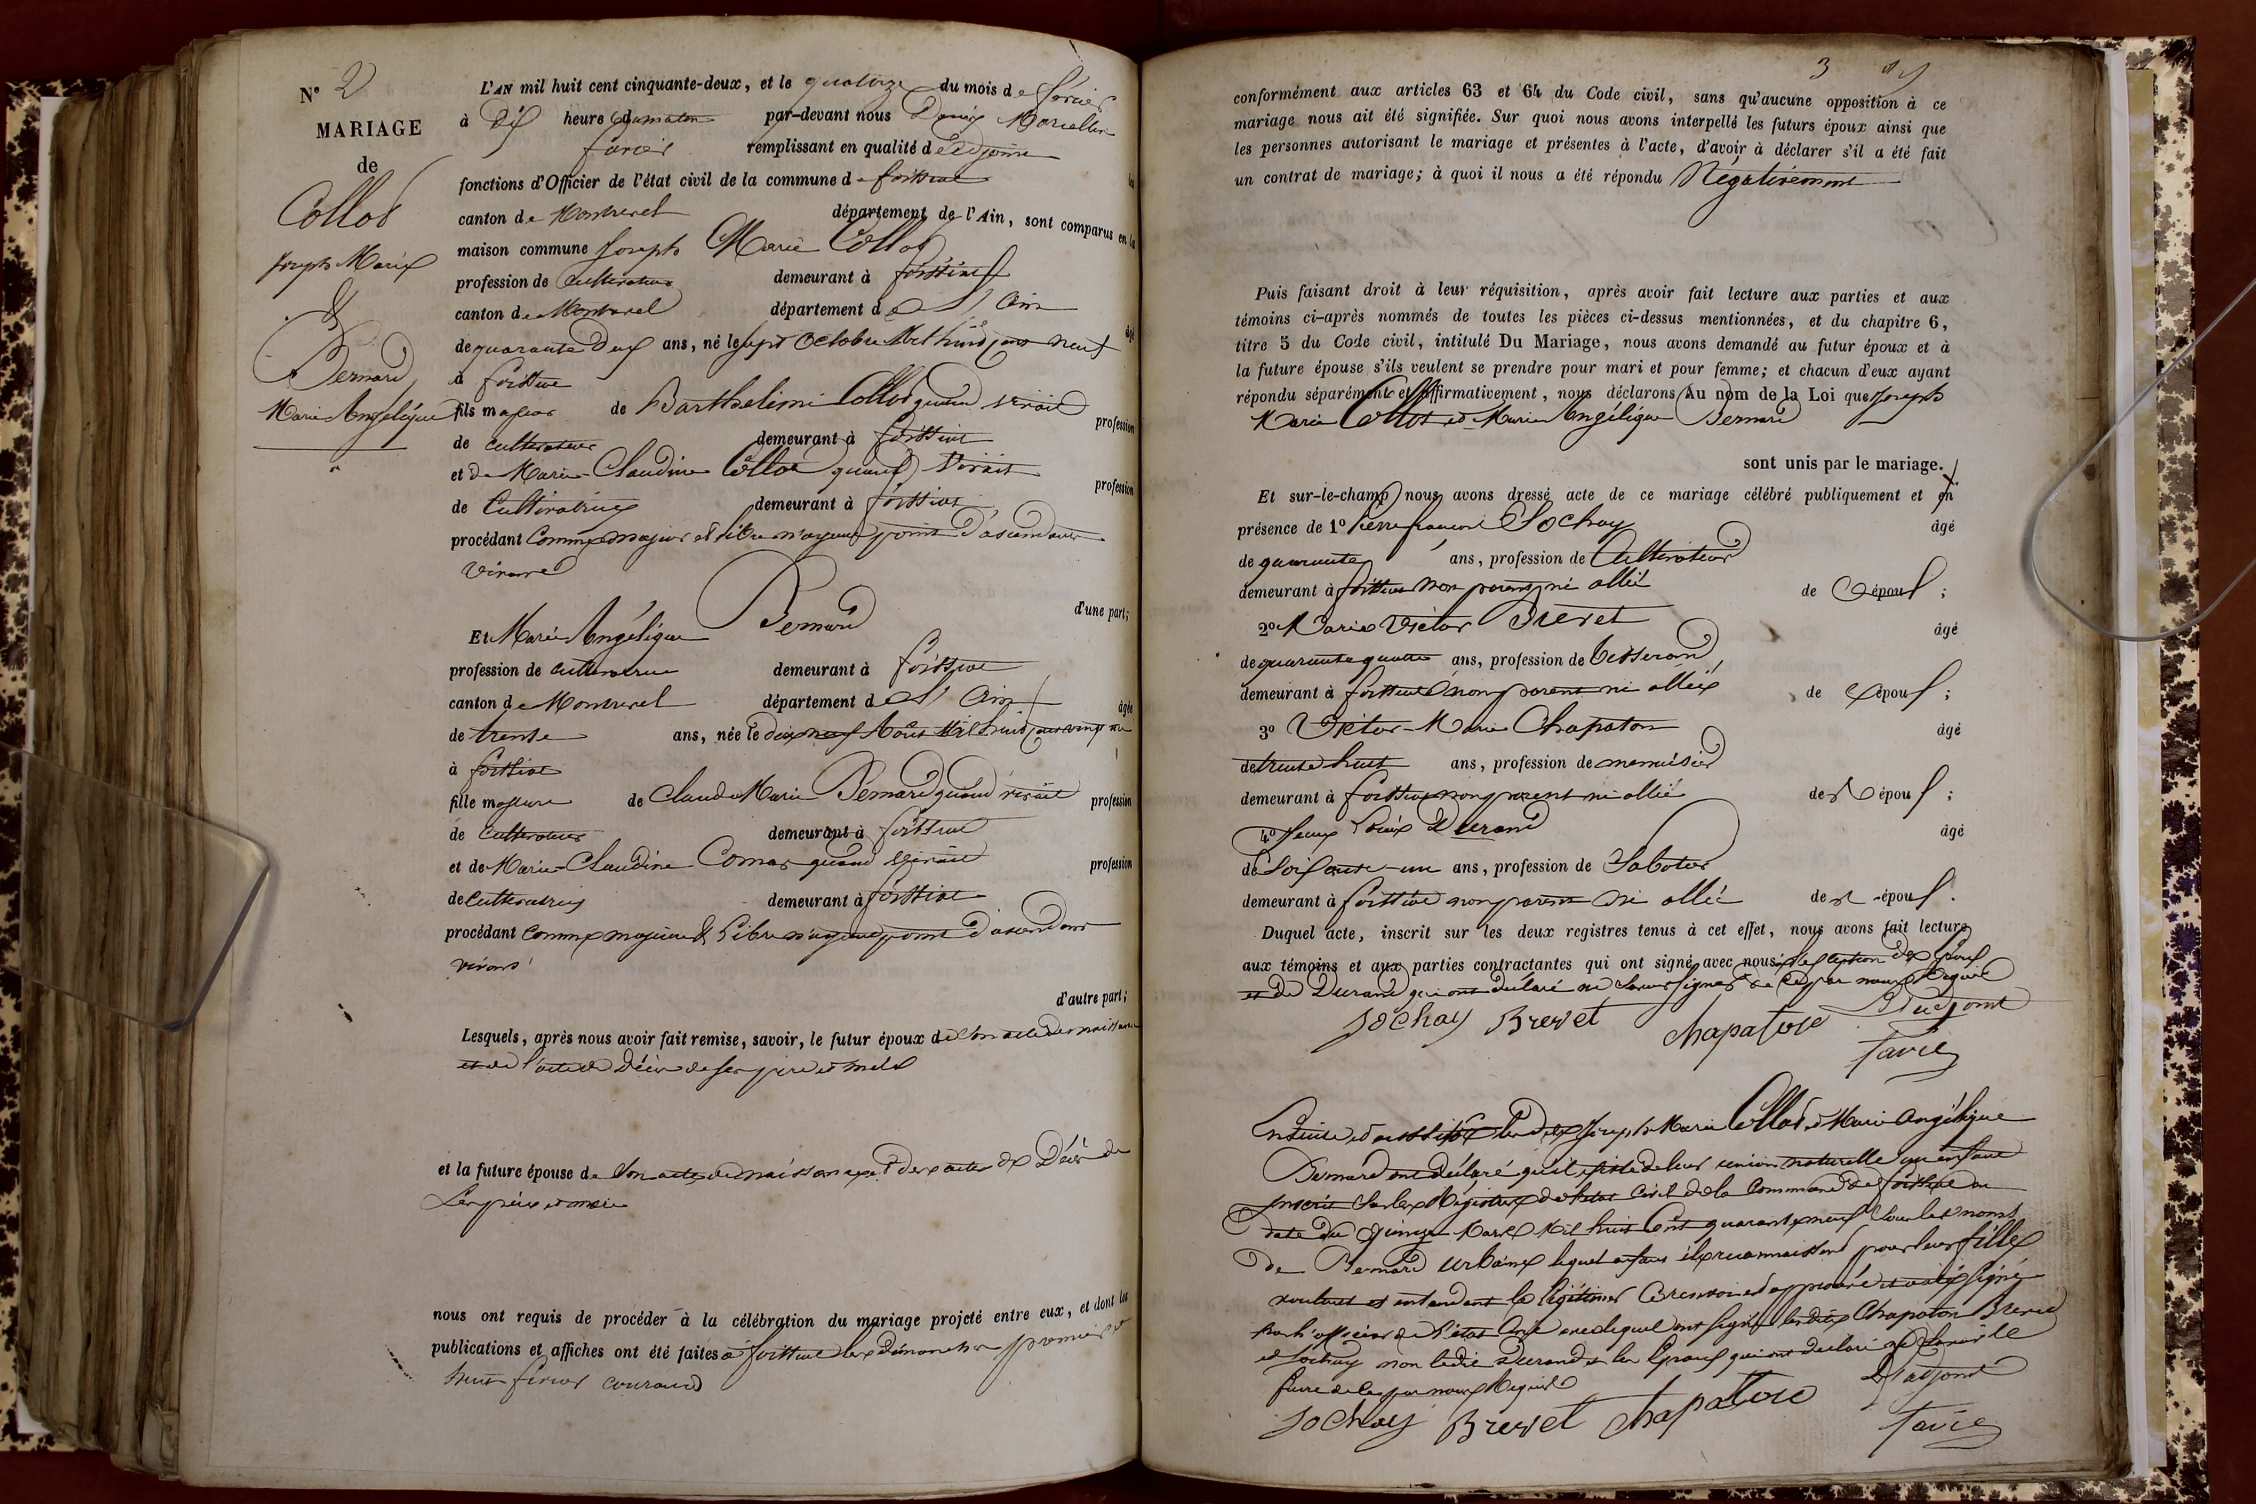 N° 2
MARIAGE
de
Collot
Joseph Marie
&
Bernard
Marie Angélique
L'AN mil huit cent cinquante-deux, et le quatorze du mois de février
à Dix heure du matin par-devant nous Denis Marcellin
favier remplissant en qualité d'adjoint les
fonctions d'Officier de l'état civil de la commune de foissiat
canton de Montrevel département de l'Ain, sont comparus en la
maison commune Joseph Marie Collot
profession de Cultivateur demeurant à foissiat
canton de Montrevel département de l'Ain âgé
de quarante Deux ans, né le sept Octobre Mil huit cent neuf
à foissiat
fils majeur de Barthelémi Collot quand vivait profession
de cultivateur demeurant à foissiat
et de Marie Claudine Collot quand vivait profession
de Cultivatrice demeurant à foissiat
procédant Comme majeur et libre n'ayant point d'ascendants
vivant
d'une part;
Et Marie Angélique Bernard
profession de cultivatrice demeurant à foissiat
canton de Montrevel département de l'Ain âgée
de trente ans, née le dix neuf Aout Mil huit cent vingt un
à foissiat
fille majeure de Claude Marie Bernard quand vivait profession
de cultivateur demeurant à foissiat
et de Marie Claudine Comas quand vivait profession
de cultivatrice demeurant à foissiat
procédant comme majeure & libre n'ayant point d'ascendants
vivants
d'autre part;
Lesquels, après nous avoir fait remise, savoir, le futur époux de son acte de naissance
et de l'acte de Décès de ses père et mère
et la future épouse de son acte de naissance et des actes de Décès de
ses père et mère
nous ont requis de procéder à la célébration du mariage projeté entre eux, et dont les
publications et affiches ont été faites à foissiat les dimanches premier et
huit février courant
3
conformément aux articles 63 et 64 du Code civil, sans qu'aucune opposition à ce
mariage nous ait été signifiée. Sur quoi nous avons interpellé les futurs époux ainsi que
les personnes autorisant le mariage et présentes à l'acte, d'avoir à déclarer s'il a été fait
un contrat de mariage; à quoi il nous a été répondu Négativement
Puis faisant droit à leur réquisition, après avoir fait lecture aux parties et aux
témoins ci-après nommés de toutes les pièces ci-dessus mentionnées, et du chapitre 6,
titre 5 du Code civil, intitulé Du Mariage, nous avons demandé au futur époux et à
la future épouse s'ils veulent se prendre pour mari et pour femme; et chacun d'eux ayant
répondu séparément et affirmativement, nous déclarons Au nom de la Loi que Joseph
Marie Collot et Marie Angélique Bernard
sont unis par le mariage.
Et sur-le-champ nous avons dressé acte de ce mariage célébré publiquement et en
présence de 1° Pierre françois Sochay âgé
de quarante ans, profession de Cultivateur
demeurant à foissiat non parent ni allié de époux;
2° Marie Victor Brevet âgé
de quarante quatre ans, profession de tisserand
demeurant à foissiat non parent ni allié de époux;
3° Victor Marie Chapaton âgé
de trente huit ans, profession de menuisier
demeurant à foissiat non parent ni allié de époux;
4° Louis Durand âgé
de Soixante-un ans, profession de Sabotier
demeurant à foissiat non parent ni allié de époux.
Duquel acte, inscrit sur les deux registres tenus à cet effet, nous avons fait lecture
aux témoins et aux parties contractantes qui ont signé avec nous à l'exception des époux
et de Durand qui ont déclaré ne savoir signer de ce par nous Requis
Sochay Brevet Chapaton L'adjoint
favier
Ensuite et aussitôt lesdits Joseph Marie Collot et Marie Angélique
Bernard ont déclaré qu'il existe de leur union naturelle un enfant
inscrit sur les Registres de l'état civil de la Commune de foissiat en
date du quinze Mars Mil huit Cent quarante neuf sous les noms
de Bernard lequel enfant ils reconnaissent pour leur fille
voulant et entendant le légitimer approuvé et signé
par l'officier de l'état civil avec lequel ont signé lesdits Chapaton Brevet
et Sochay non ledit Durand et les époux qui ont déclaré ne savoir le
faire de ce par nous Requis L'adjoint
Sochay Brevet Chapaton favier